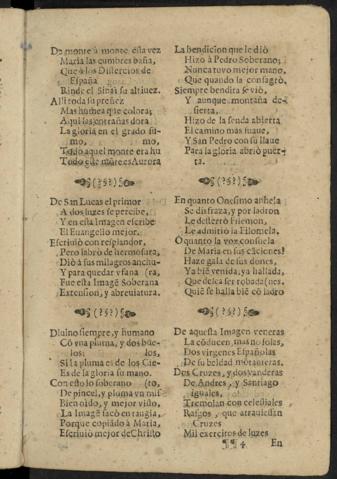 De monte à monte esta vez
Maria las cumbres baña,
Que à los Distercios de
España
Rinde el Sinai su altiuez.
Alli toda su preñez
Mas humea que colora;
Aqui las entrañas dora
La gloria en el grado su-
mo,
Todo aquel monte era hu
mo,
Todo este monte es Aurora
De San Lucas el primor
A dos luzes se percibe,
Y en esta Imagen escribe
El Euangelio mejor.
Escriuiò con resplandor,
Pero labrò de hermosura,
Diò à sus milagros anchu-
Y para quedar vfana (ra,
Fue esta Imagē Soberana
Extension, y abreuiatura.
Diuino siempre, y humano
Cō vna pluma, y dos bue-
los: los,
Si la pluma es de los Cie-
Es de la gloria su mano.
Con esto lo soberano (to,
De pincel, y pluma vn mis
Bien oido, y mejor visto,
La Imagē sacò en
Porque copiādo à Maria,
Escriuiò mejor de Christo
La bendicion que le diò
Hizo à Pedro Soberano;
Nunca tuvo mejor mano,
Que quando la consagrò,
Siempre bendita se viò,
Y aunque montaña de-
sierta,
Hizo de la senda abierta
El camino mas suaue,
Y San Pedro con su llaue
Para la gloria abriò puer-
ta.
En quanto Onesimo anhela
Se disfraza, y por ladron
Le desterrò Filemon,
Le admitiò la Filomela,
O quanto la voz consuela
De Maria en sus cāciones!
Haze gala de sus dones,
Ya biē venida, ya hallada,
Que dexa ser robada
Quiē se halla biē cō ladro (nes.
De aquesta Imagen veneras
La cōducen mas no solas,
Dos virgenes Españolas
De su beldad
Dos Cruzes, y dos vanderas
De Andres, y Santiago
iguales,
Tremolan con celestiales
Rasgos, que atrauiessan
Cruzes
Mil exercitos de luzes
¶¶ 4. En